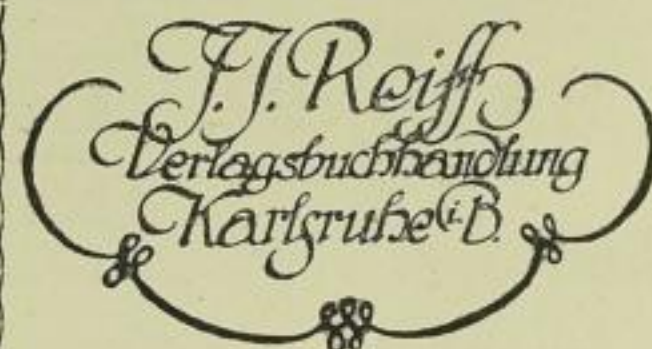 J.J. Reiff
Verlagsbuchhandlung
Karlsruhe i.B.